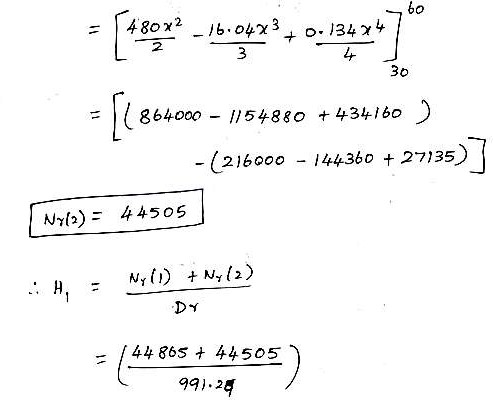 = [480x²/2 - 16.04x³/3 + 0.134x⁴/4]₃₀⁶⁰
= [(864000 - 1154880 + 434160)
- (216000 - 144360 + 27135)]
Nr(2) = 44505
∴ H₁ = Nr(1) + Nr(2) / Dr
= (44865 + 44505 / 991.2)